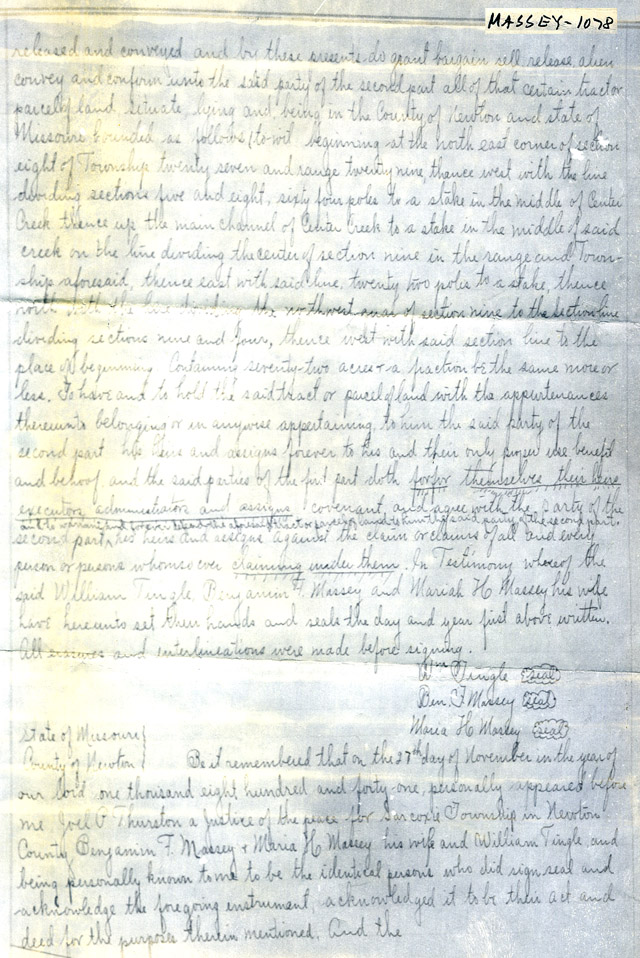 MASSEY-1078
released and conveyed and by these presents do grant bargain sell, release, alien
convey and confirm unto the said party of the second part all of that certain tract or
parcel of land, situate, lying and being in the County of Newton and state of
Missouri bounded as follows to wit beginning at the north east corner of section
eight of Township twenty seven and range twenty nine, thence west with the line
dividing sections five and eight, sixty four poles to a stake in the middle of Center
Creek thence up the main channel of Center Creek to a stake in the middle of said
creek on the line dividing the center of section nine in the range and Town-
ship aforesaid, thence east with said line, twenty two poles to a stake, thence
north with the line dividing the northwest of section nine to the section line
dividing sections nine and four, thence west with said section line to the
place of beginning Containing seventy-two acres + a fraction be the same more or
less. To have and to hold the said tract or parcel of land with the appertenances
thereunto belonging or in anywise appertaining, to him the said party of the
second part his heirs and assigns forever to his and their only proper use benefit
and behoof, and the said parties of the first part doth for themselves their heirs
executors, administrators and assigns covenant, and agree with the party of the
and to warrant and forever defend the aforesaid tract or parcel of land to him the said party of the second part.
second part, his heirs and assigns against the claim or claims of all and every
person or persons whomsoever claiming under them. In Testimony whereof the
said William Tingle, Benjamin F. Massey and Mariah H Massey his wife
have hereunto set their hands and seals the day and year first above written.
All erasures and interlineations were made before signing.
Wm Tingle seal
Ben. F Massey seal
Maria H Massey seal
State of Missouri }
County of Newton } Be it remembered that on the 27th day of November in the year of
our Lord one thousand eight hundred and forty-one, personally appeared before
me, Joel P Thurston a Justice of the peace for Sarcoxie Township in Newton
County, Benjamin F. Massey + Maria H Massey his wife and William Tingle, and
being personally known to me to be the identical persons who did sign seal and
acknowledge the foregoing instrument, acknowledged it to be their act and
deed for the purposes therein mentioned. And the